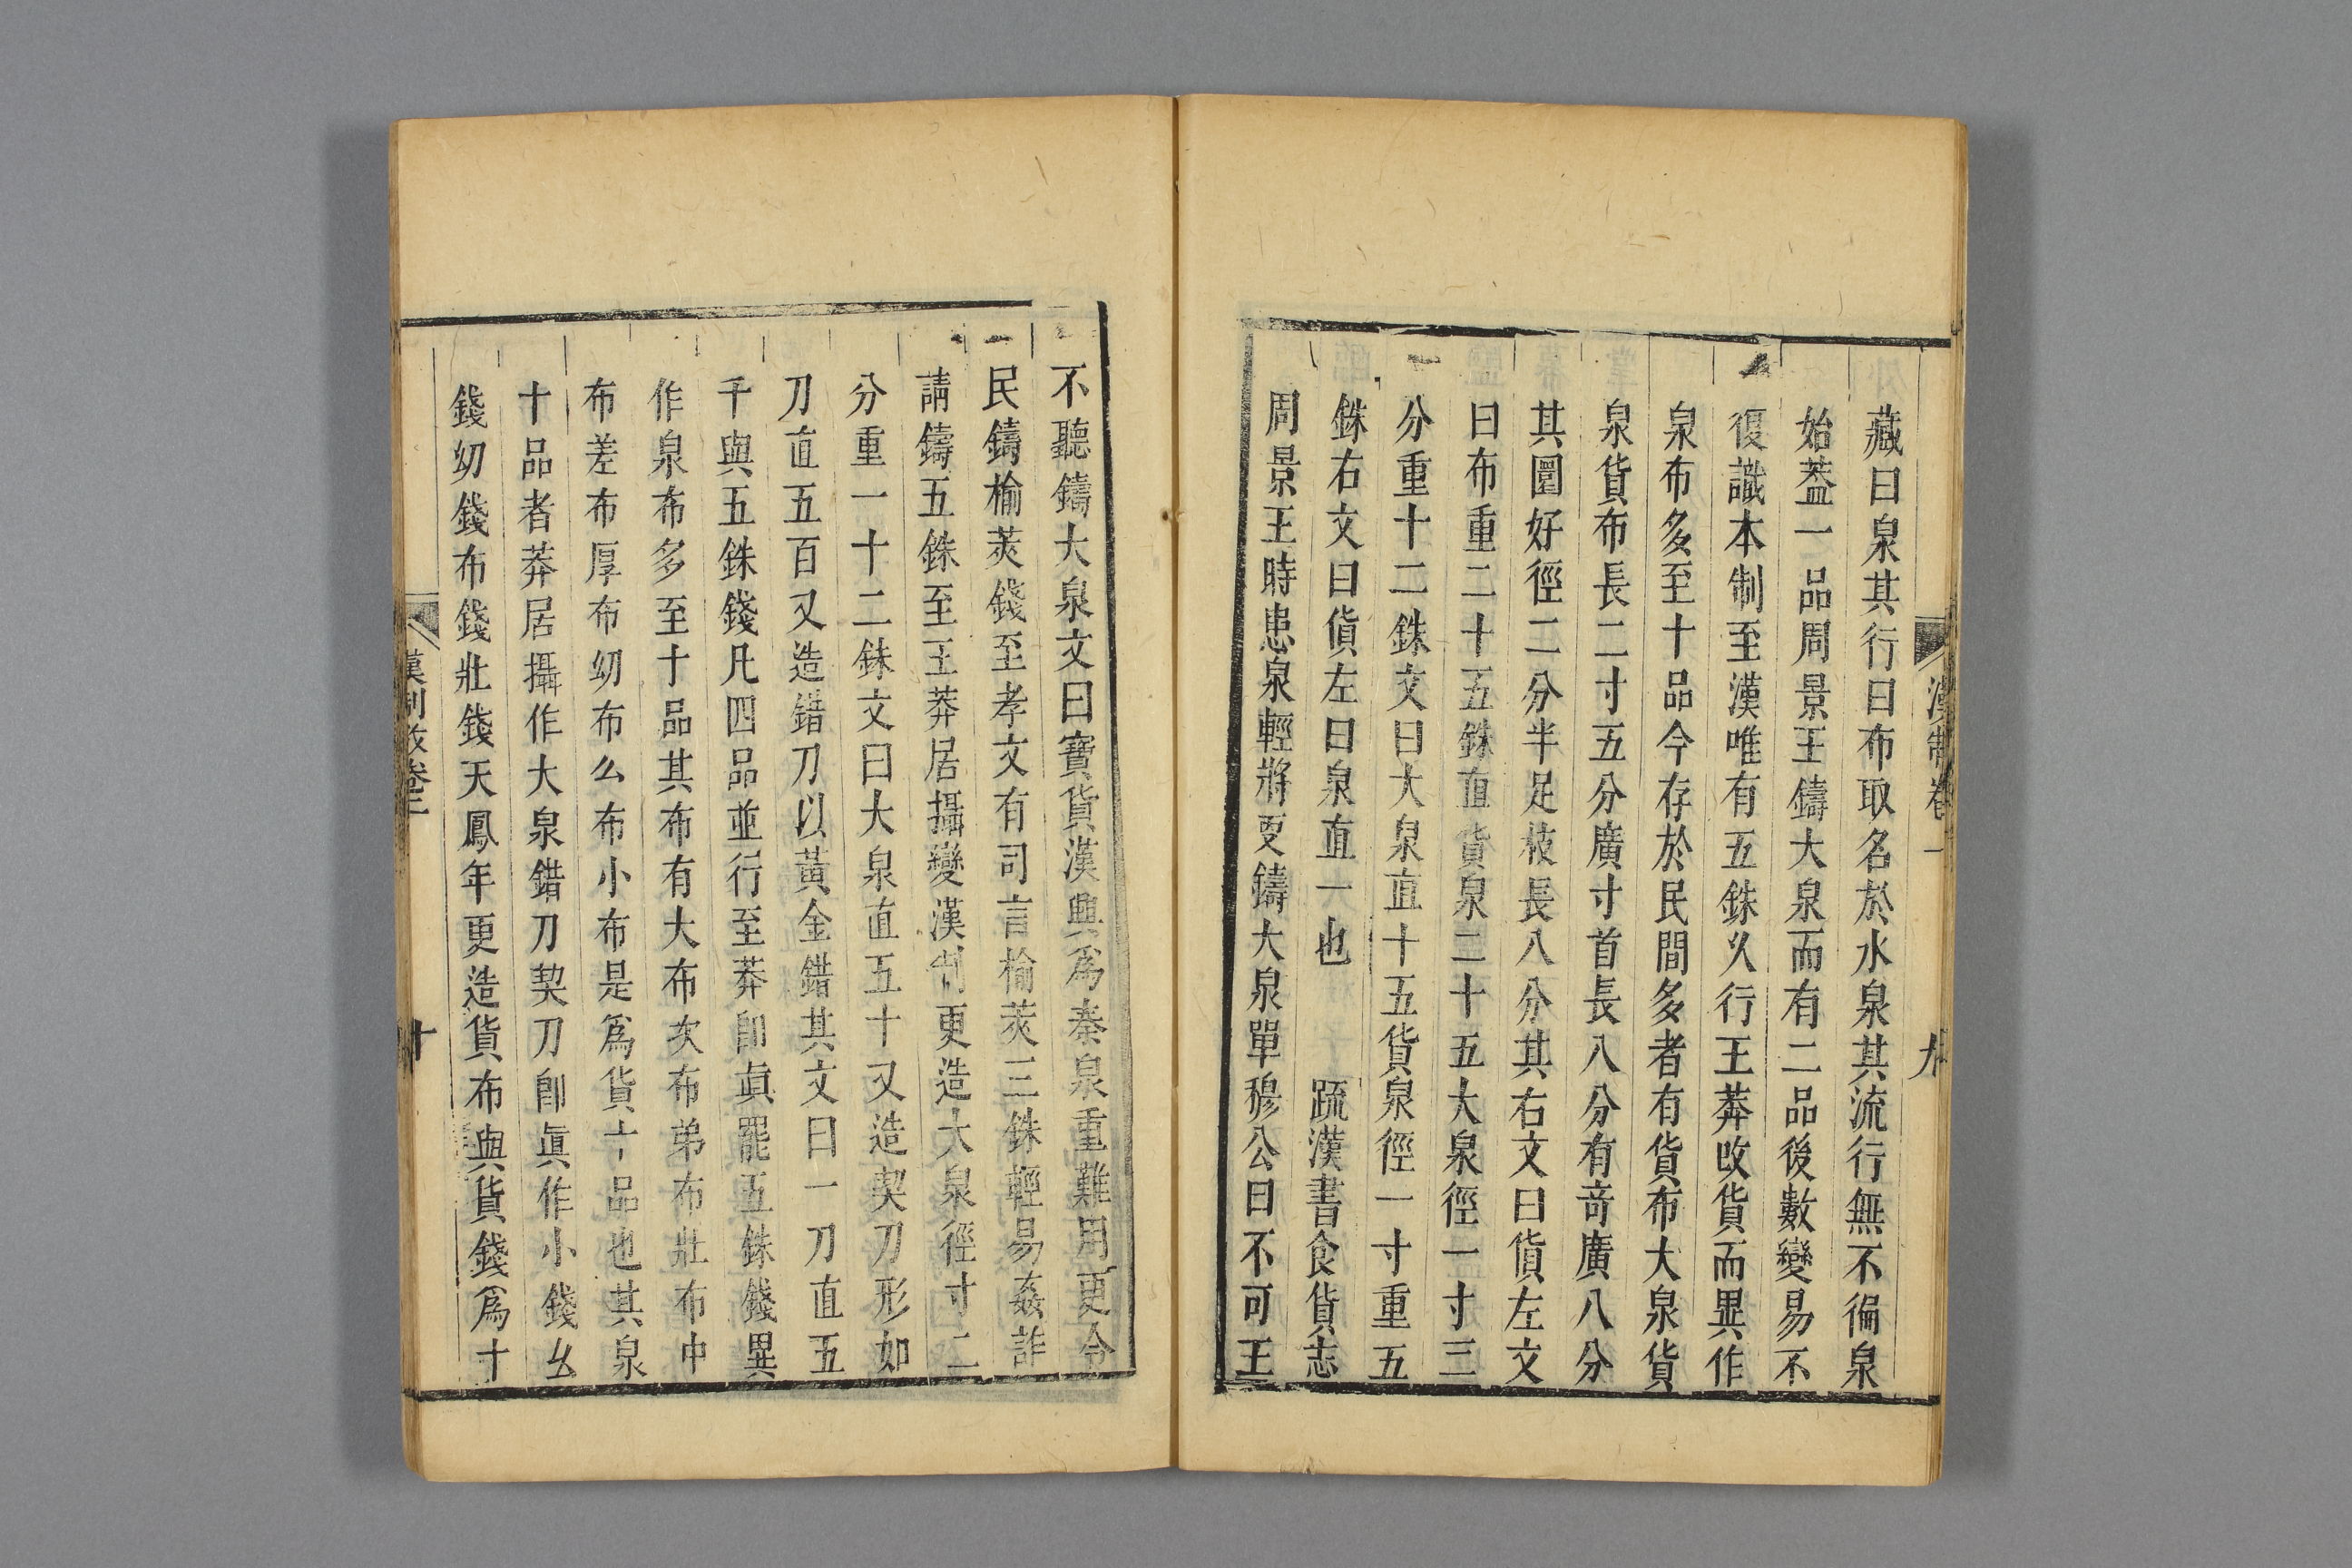 漢制卷一
九
藏曰泉其行曰布取名於水泉其流行無不徧泉
始蓋一品周景王鑄大泉而有二品後數變易不
復識本制至漢唯有五銖久行王莽改貨而異作
泉布多至十品今存於民間多者有貨布大泉貨
泉貨布長二寸五分廣寸首長八分有奇廣八分
其圜好徑二分半足枝長八分其右文曰貨左文
曰布重二十五銖直貨泉二十五大泉徑一寸三
分重十二銖文曰大泉直十五貨泉徑一寸重五
銖右文曰貨左曰泉直一也 䟽漢書食貨志
周景王時患泉輕將更鑄大泉單穆公曰不可王
不聽鑄大泉文曰寶貨漢興爲秦泉重難用更令
民鑄榆莢錢至孝文有司言榆莢三銖輕易姦詐
請鑄五銖至王莽居攝變漢制更造大泉徑寸二
分重一十二銖文曰大泉直五十又造契刀形如
刀直五百又造錯刀以黃金錯其文曰一刀直五
千與五銖錢凡四品並行至莽卽眞罷五銖錢異
作泉布多至十品其布有大布次布弟布壯布中
布差布厚布幼布么布小布是爲貨十品也其泉
十品者莽居攝作大泉錯刀契刀卽眞作小錢幺
錢幼錢布錢壯錢天鳳年更造貨布與貨錢爲十
漢制攷卷二
十